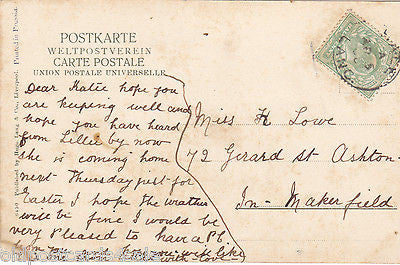 POSTKARTE
WELTPOSTVEREIN
CARTE POSTALE
UNION POSTALE UNIVERSELLE
Dear Katie hope you
are keeping well and
hope you have heard
from Lillie by now
she is coming home
next Thursday just for
Easter I hope the weather
will be fine I would be
very Pleased to have a P.C
from you
with love
Miss K Lowe
72 Gerard st Ashton-
In-Makerfield
Liverpool. Printed in Prussia